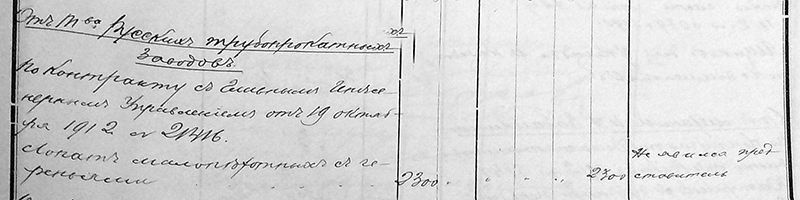 Отъ Т-ва Русскихъ трубопрокатныхъ
Заводовъ.
По контракту съ Главнымъ Инже-
нернымъ Управленіемъ отъ 19 октяб-
ря 1912 №
Лопатъ малопѣхотныхъ съ че-
реньями 2300 " " " " 2300
Не явился пред-
ставитель